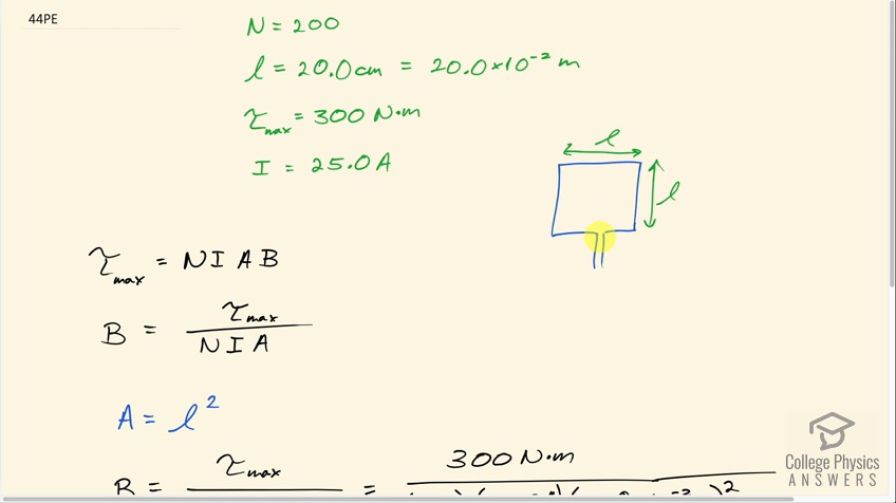 44PE
N = 200
l = 20.0 cm = 20.0×10⁻² m
τmax = 300 N·m
I = 25.0 A
l
l
τmax = NIAB
B = τmax / NIA
A = l²
B = τmax = 300 N·m
College Physics
ANSWERS